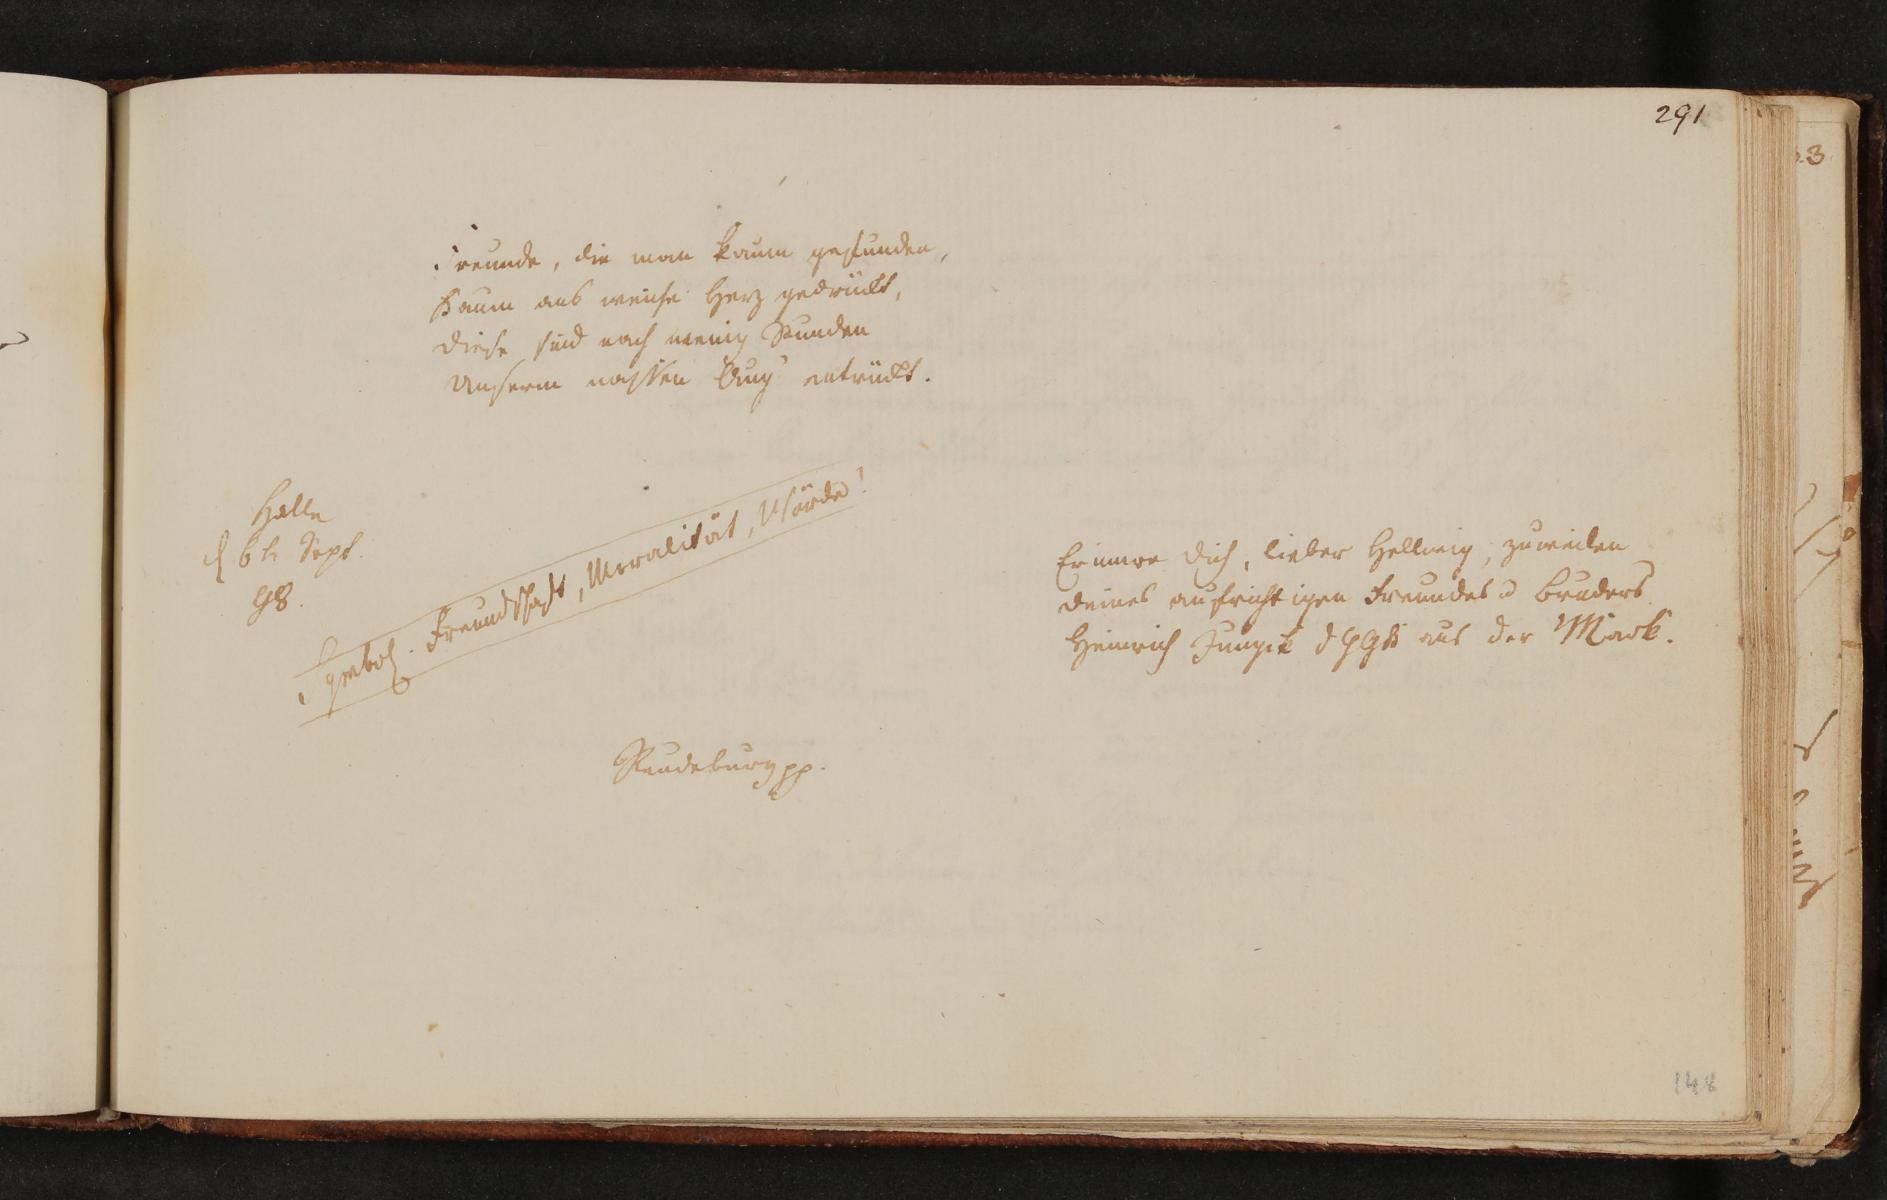 291
Freunde, die man kaum gefunden,
Kaum ans weiche Herz gedrückt,
Diese sind nach wenig Stunden
Unserm nassen Aug' entrückt.
Halle
d 6t Sept.
98.
Symbol. Freundschaft, Moralität, Würde!
Erinnre Dich, lieber Hellwig, zuweilen
deines aufrichtigen Freundes u Bruders
Heinrich aus der Mark.
Reudeburg pp.
148